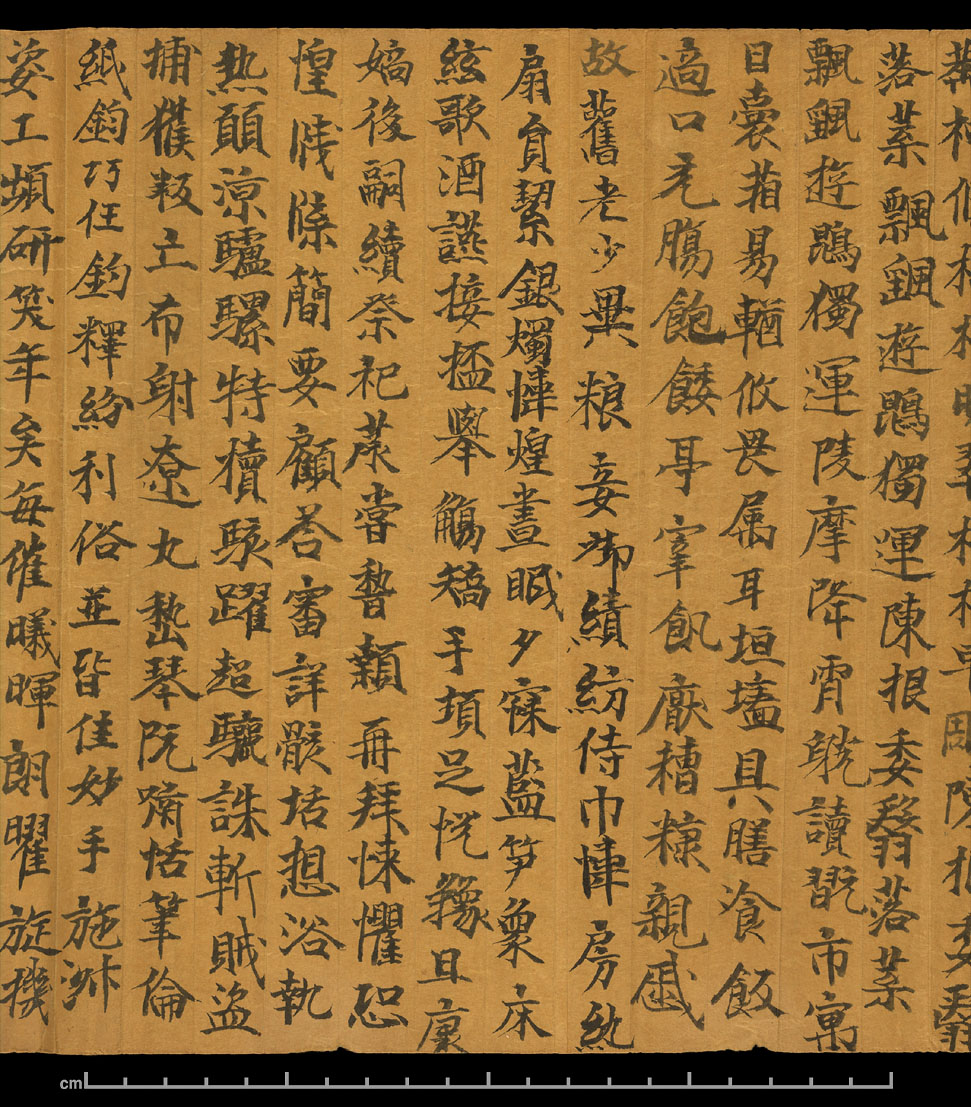 條枇杷晚翠梧桐早凋陳根委翳
落葉飄颻遊鵾獨運陳根委翳落葉
飄颻遊鵾獨運陵摩降霄躭讀翫市寓
目囊葙易輶攸畏属耳垣墻具膳飡飯
適口充腸飽餧亭宰飢厭糟糠親戚
故舊老少異粮妾御績紡侍巾幃房紈
扇員絜銀燭幃煌晝眠夕寐藍笋象床
絃歌酒讌接盃舉觴矯手頓足悅豫且康
嫡後嗣續祭祀蒸嘗稽顙再拜悚懼恐
惶牋牒簡要顧答審詳骸垢想浴執
熱願涼驢騾特犢駭躍超驤誅斬賊盗
捕獲叛亡布射遼丸嵇琴阮嘯恬筆倫
紙鈞巧任釣釋紛利俗並皆佳妙手施淑
姿工頻研笑年矢每催曦暉朗曜旋機